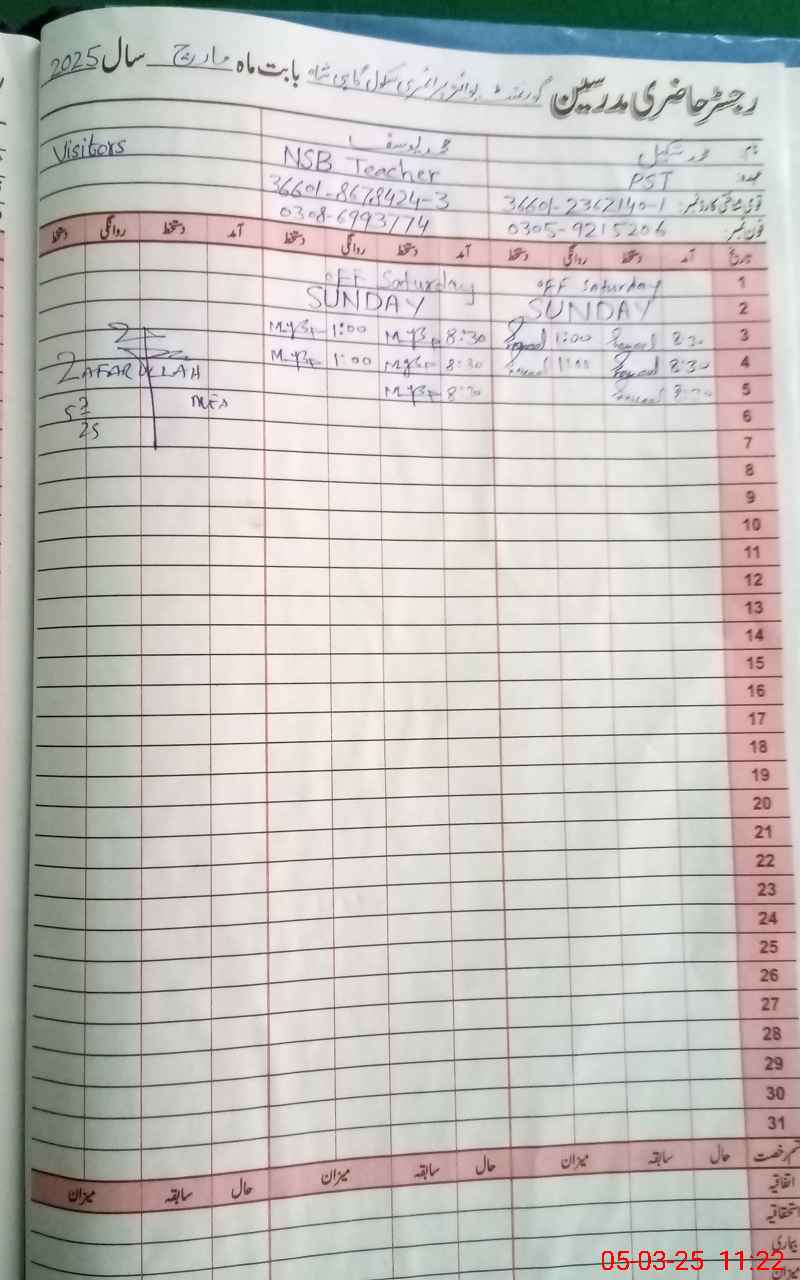 رجسٹر حاضری مدرسین گورنمنٹ بوائز پرائمری سکول بابت ماہ مارچ سال 2025
نام محمد یوسف Visitors
عہدہ PST NSB Teacher
قومی شناختی کارڈ نمبر: 36601-2362140-1 36601-8678424-3
فون نمبر: 0305-9215206 0308-6993774
تاریخ آمد دستخط روانگی دستخط آمد دستخط روانگی دستخط آمد دستخط روانگی دستخط
1 OFF Saturday OFF Saturday
2 SUNDAY SUNDAY
3 8:30 1:00 8:30 1:00
4 8:30 1:00 8:30 1:00 ZAFARULLAH
5 8:30 8:30 MEA
6
7
8
9
10
11
12
13
14
15
16
17
18
19
20
21
22
23
24
25
26
27
28
29
30
31
قسم رخصت حال سابقہ میزان حال سابقہ میزان حال سابقہ میزان
اتفاقیہ
استحقاقیہ
بیماری
میزان
05-03-25 11:22